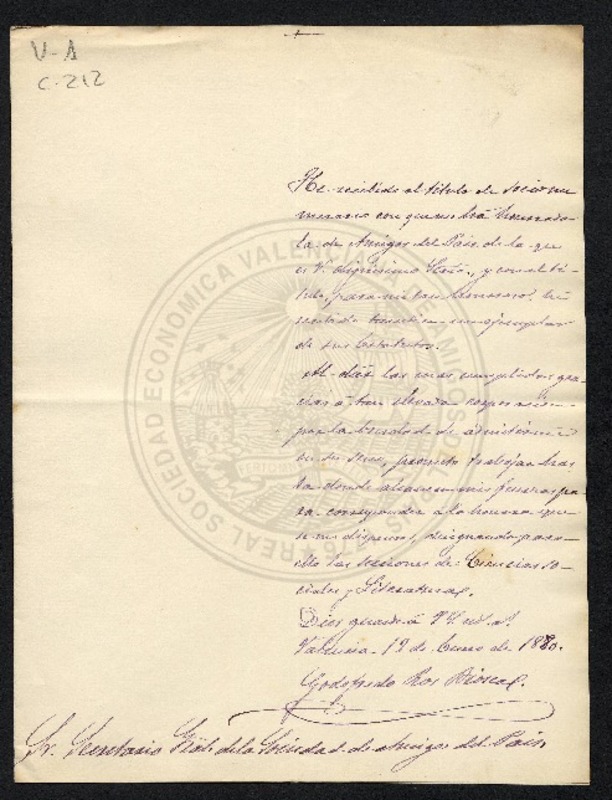 V-A
C-212
He recibido el título de socio nu
merario con que me ha honrado
la de Amigos del País de la que
es V. dignísimo Srio., y con el tí
tulo, para mi tan honroso, he
recibido tambien un ejemplar
de sus Estatutos.
Al dár las mas cumplidas gra
cias á tan elevada corporación
por la bondad de admitirme
en su seno, prometo trabajar has
ta donde alcancen mis fuerzas pa
ra corresponder a la honra que
se me dispensa, designando para
ello las secciones de Ciencias so-
ciales y Literatura.
Dios guarde á V. S. m. a.
Valencia 12 de Enero de 1880.
Godofredo Ros Biosca.
Sr. Secretario Gral. de la Sociedad de Amigos del País
REAL SOCIEDAD ECONOMICA VALENCIANA DE AMIGOS DEL PAIS 1776